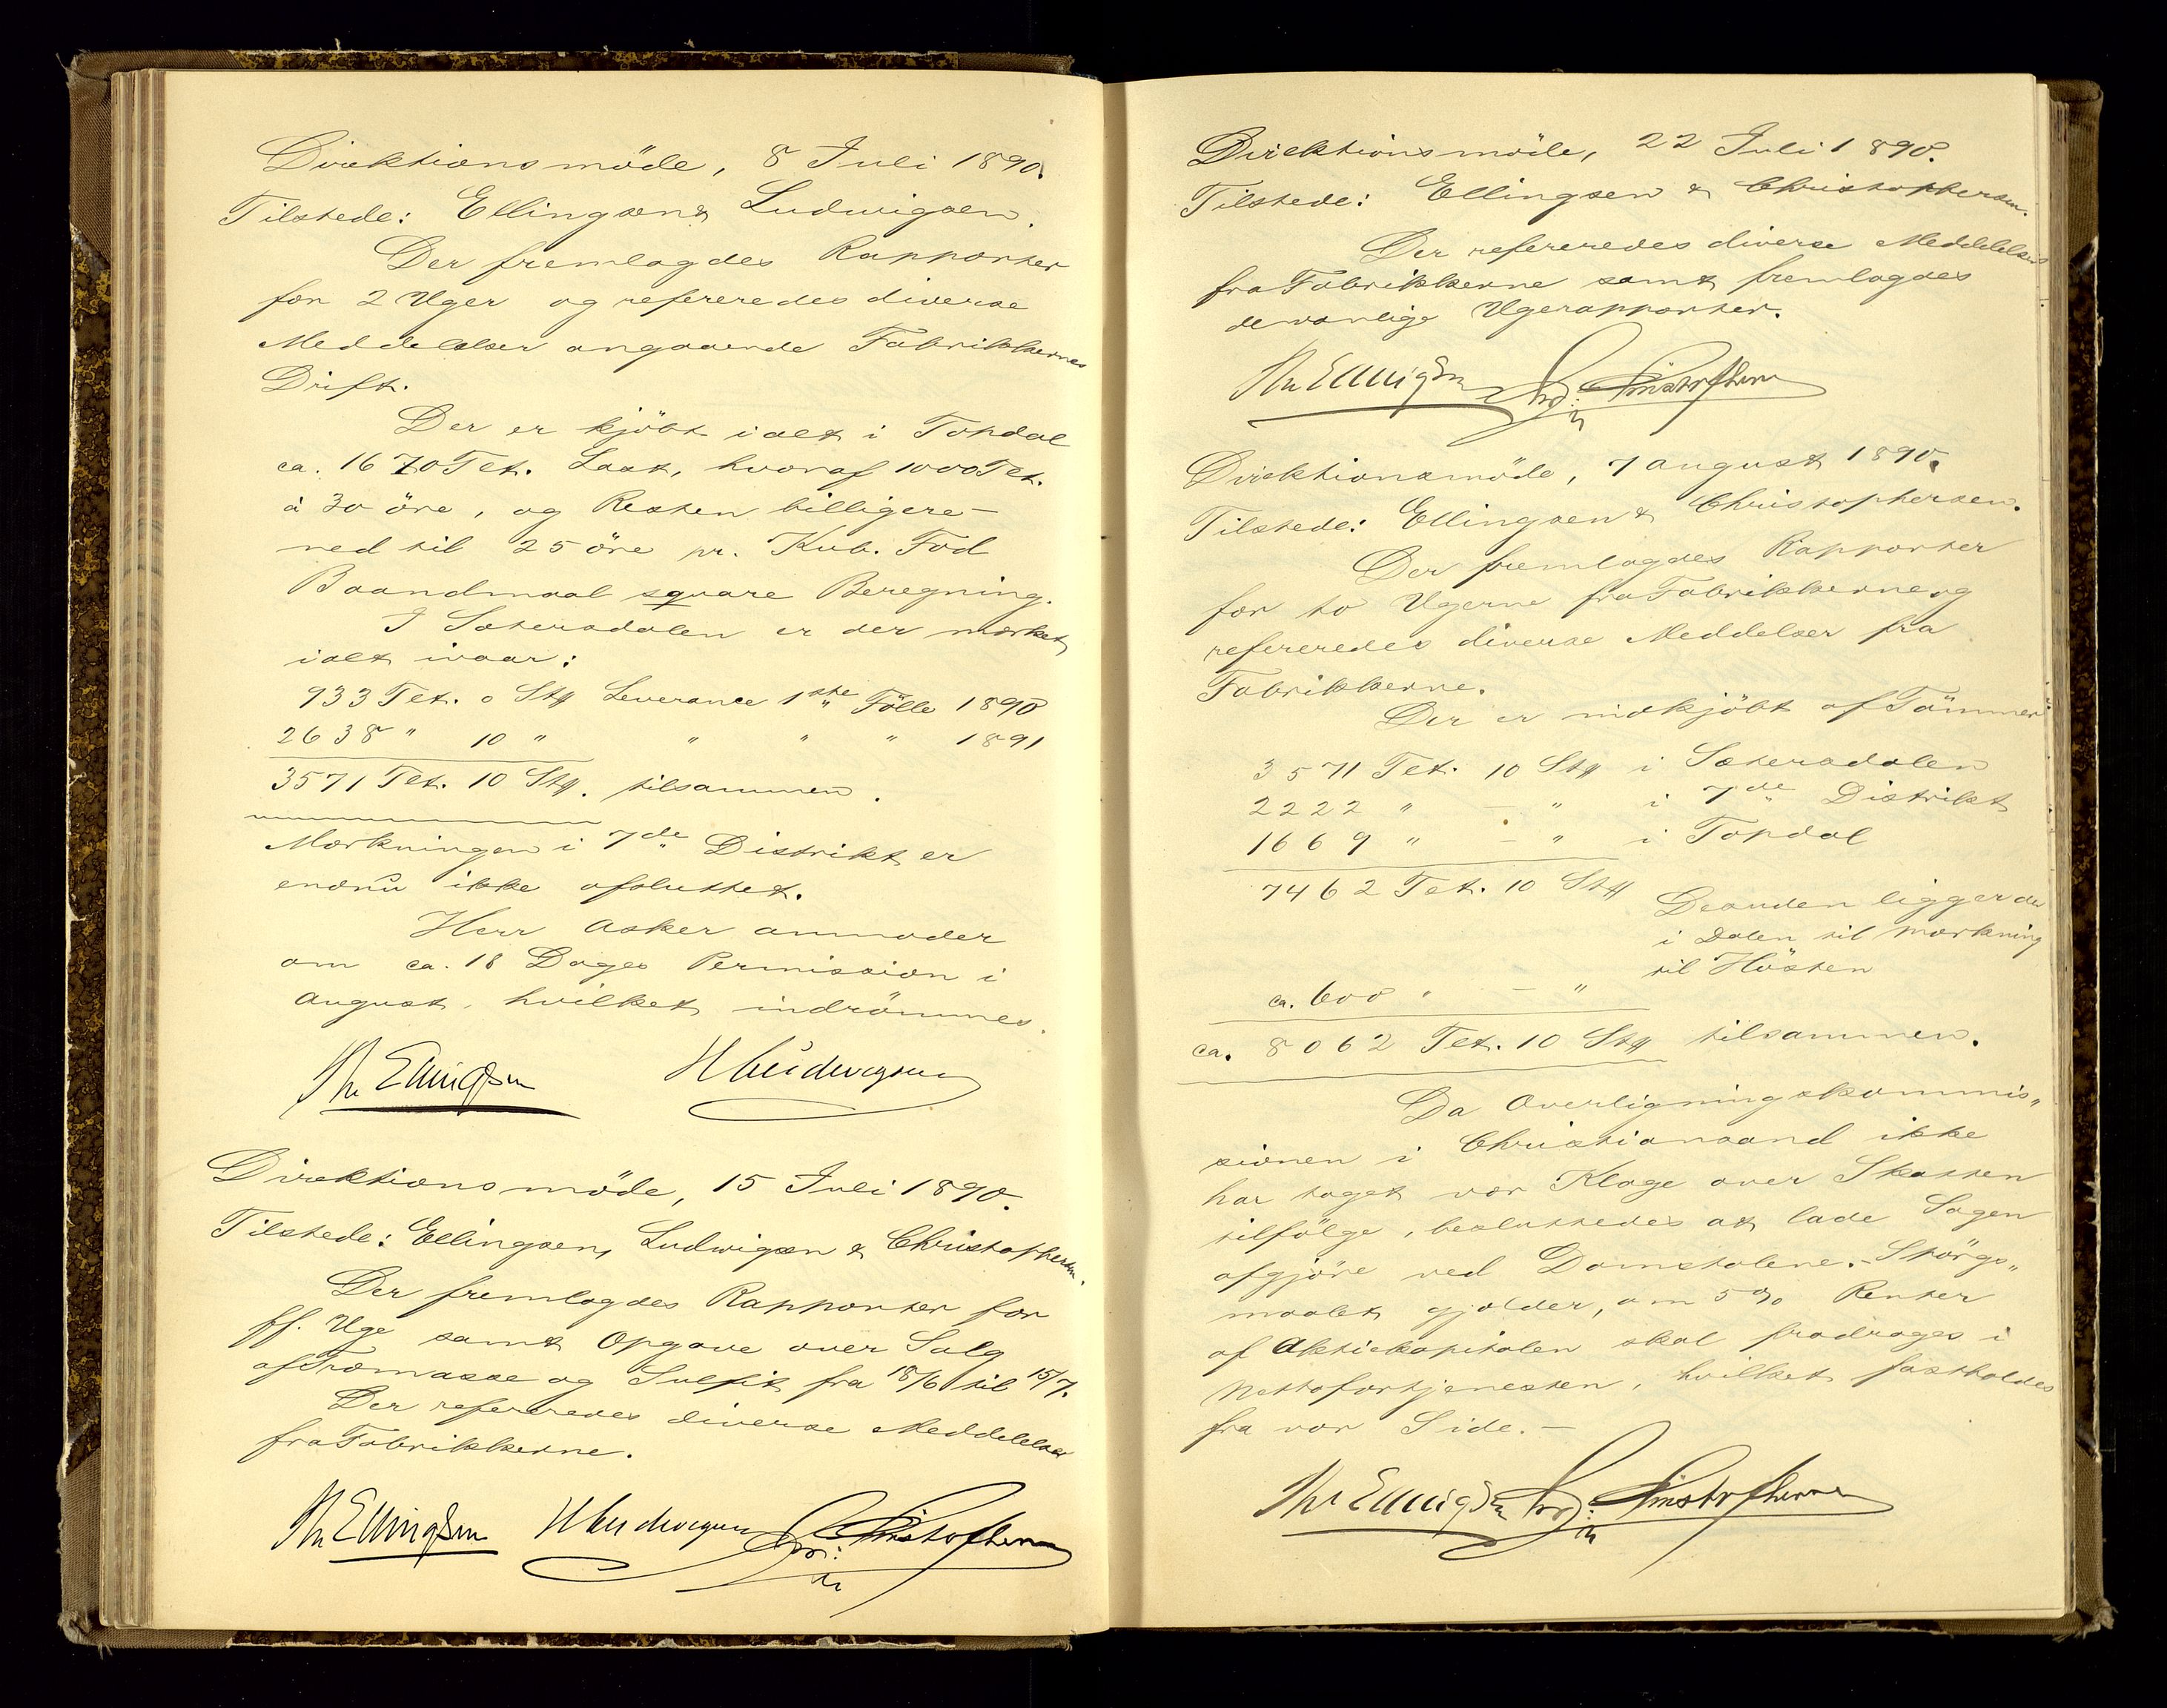 Direktionsmöde, 8 Juli 1890.
Tilstede: Ellingsen & Ludwigsen.
Der fremlagdes Rapporter
for 2 Uger og refereredes diverse
Meddelelser angaaende Fabrikkernes
Drift.
Der er kjöbt ialt i Topdal
ca. 1670 Tet. Last, hvoraf 1000 Tet.
à 30 öre, og Resten billigere -
ned til 25 öre pr. Kub. Fod
Baandmaal square Beregning.
I Sætersdalen er der mærket
ialt ivaar:
933 Tet. 0 Stk Leverance 1ste Fölle 1890
2638 " 10 " " " " 1891
3571 Tet. 10 Stk. tilsammen.
Mærkningen i 7de Distrikt er
endnu ikke afsluttet.
Herr Asker anmoder
om ca. 18 Dages Permission i
August, hvilket indrömmes.
Th Ellingsen H Ludwigsen
Direktionsmöde, 15 Juli 1890.
Tilstede: Ellingsen, Ludwigsen & Christophersen.
Der fremlagdes Rapporter for
ff. Uge samt Opgave over Salg
af Træmasse og Sulfit fra 18/6 til 15/7.
Der refereredes diverse Meddelelser
fra Fabrikkerne.
Th Ellingsen H Ludwigsen Christophersen
Direktionsmöde, 22 Juli 1890.
Tilstede: Ellingsen & Christophersen.
Der refereredes diverse Meddelelser
fra Fabrikkerne samt fremlagdes
de vanlige Ugerapporter.
Th Ellingsen Christophersen
Direktionsmöde, 7 August 1890.
Tilstede: Ellingsen & Christophersen.
Der fremlagdes Rapporter
for to Ugerne fra Fabrikkerne og
refereredes diverse Meddelser fra
Fabrikkerne.
Der er indkjöbt af Tömmer
3571 Tet. 10 Stk i Sætersdalen
2222 " - " i 7de Distrikt
1669 " - " i Topdal
7462 Tet. 10 Stk
Desuden ligger der
i Dalen til Mærkning
til Hösten
ca. 600 " - "
ca. 8062 Tet. 10 Stk tilsammen.
Da Overligningskommis„
sionen i Christianssand ikke
har taget vor Klage over Skatten
tilfölge, besluttedes at lade Sagen
afgjöre ved Domstolene. - Spörgs„
maalet gjælder, om 5% Renter
af Aktiekapitalen skal fradrages i
Nettofortjenesten, hvilket fastholdes
fra vor Side. -
Th Ellingsen Christophersen